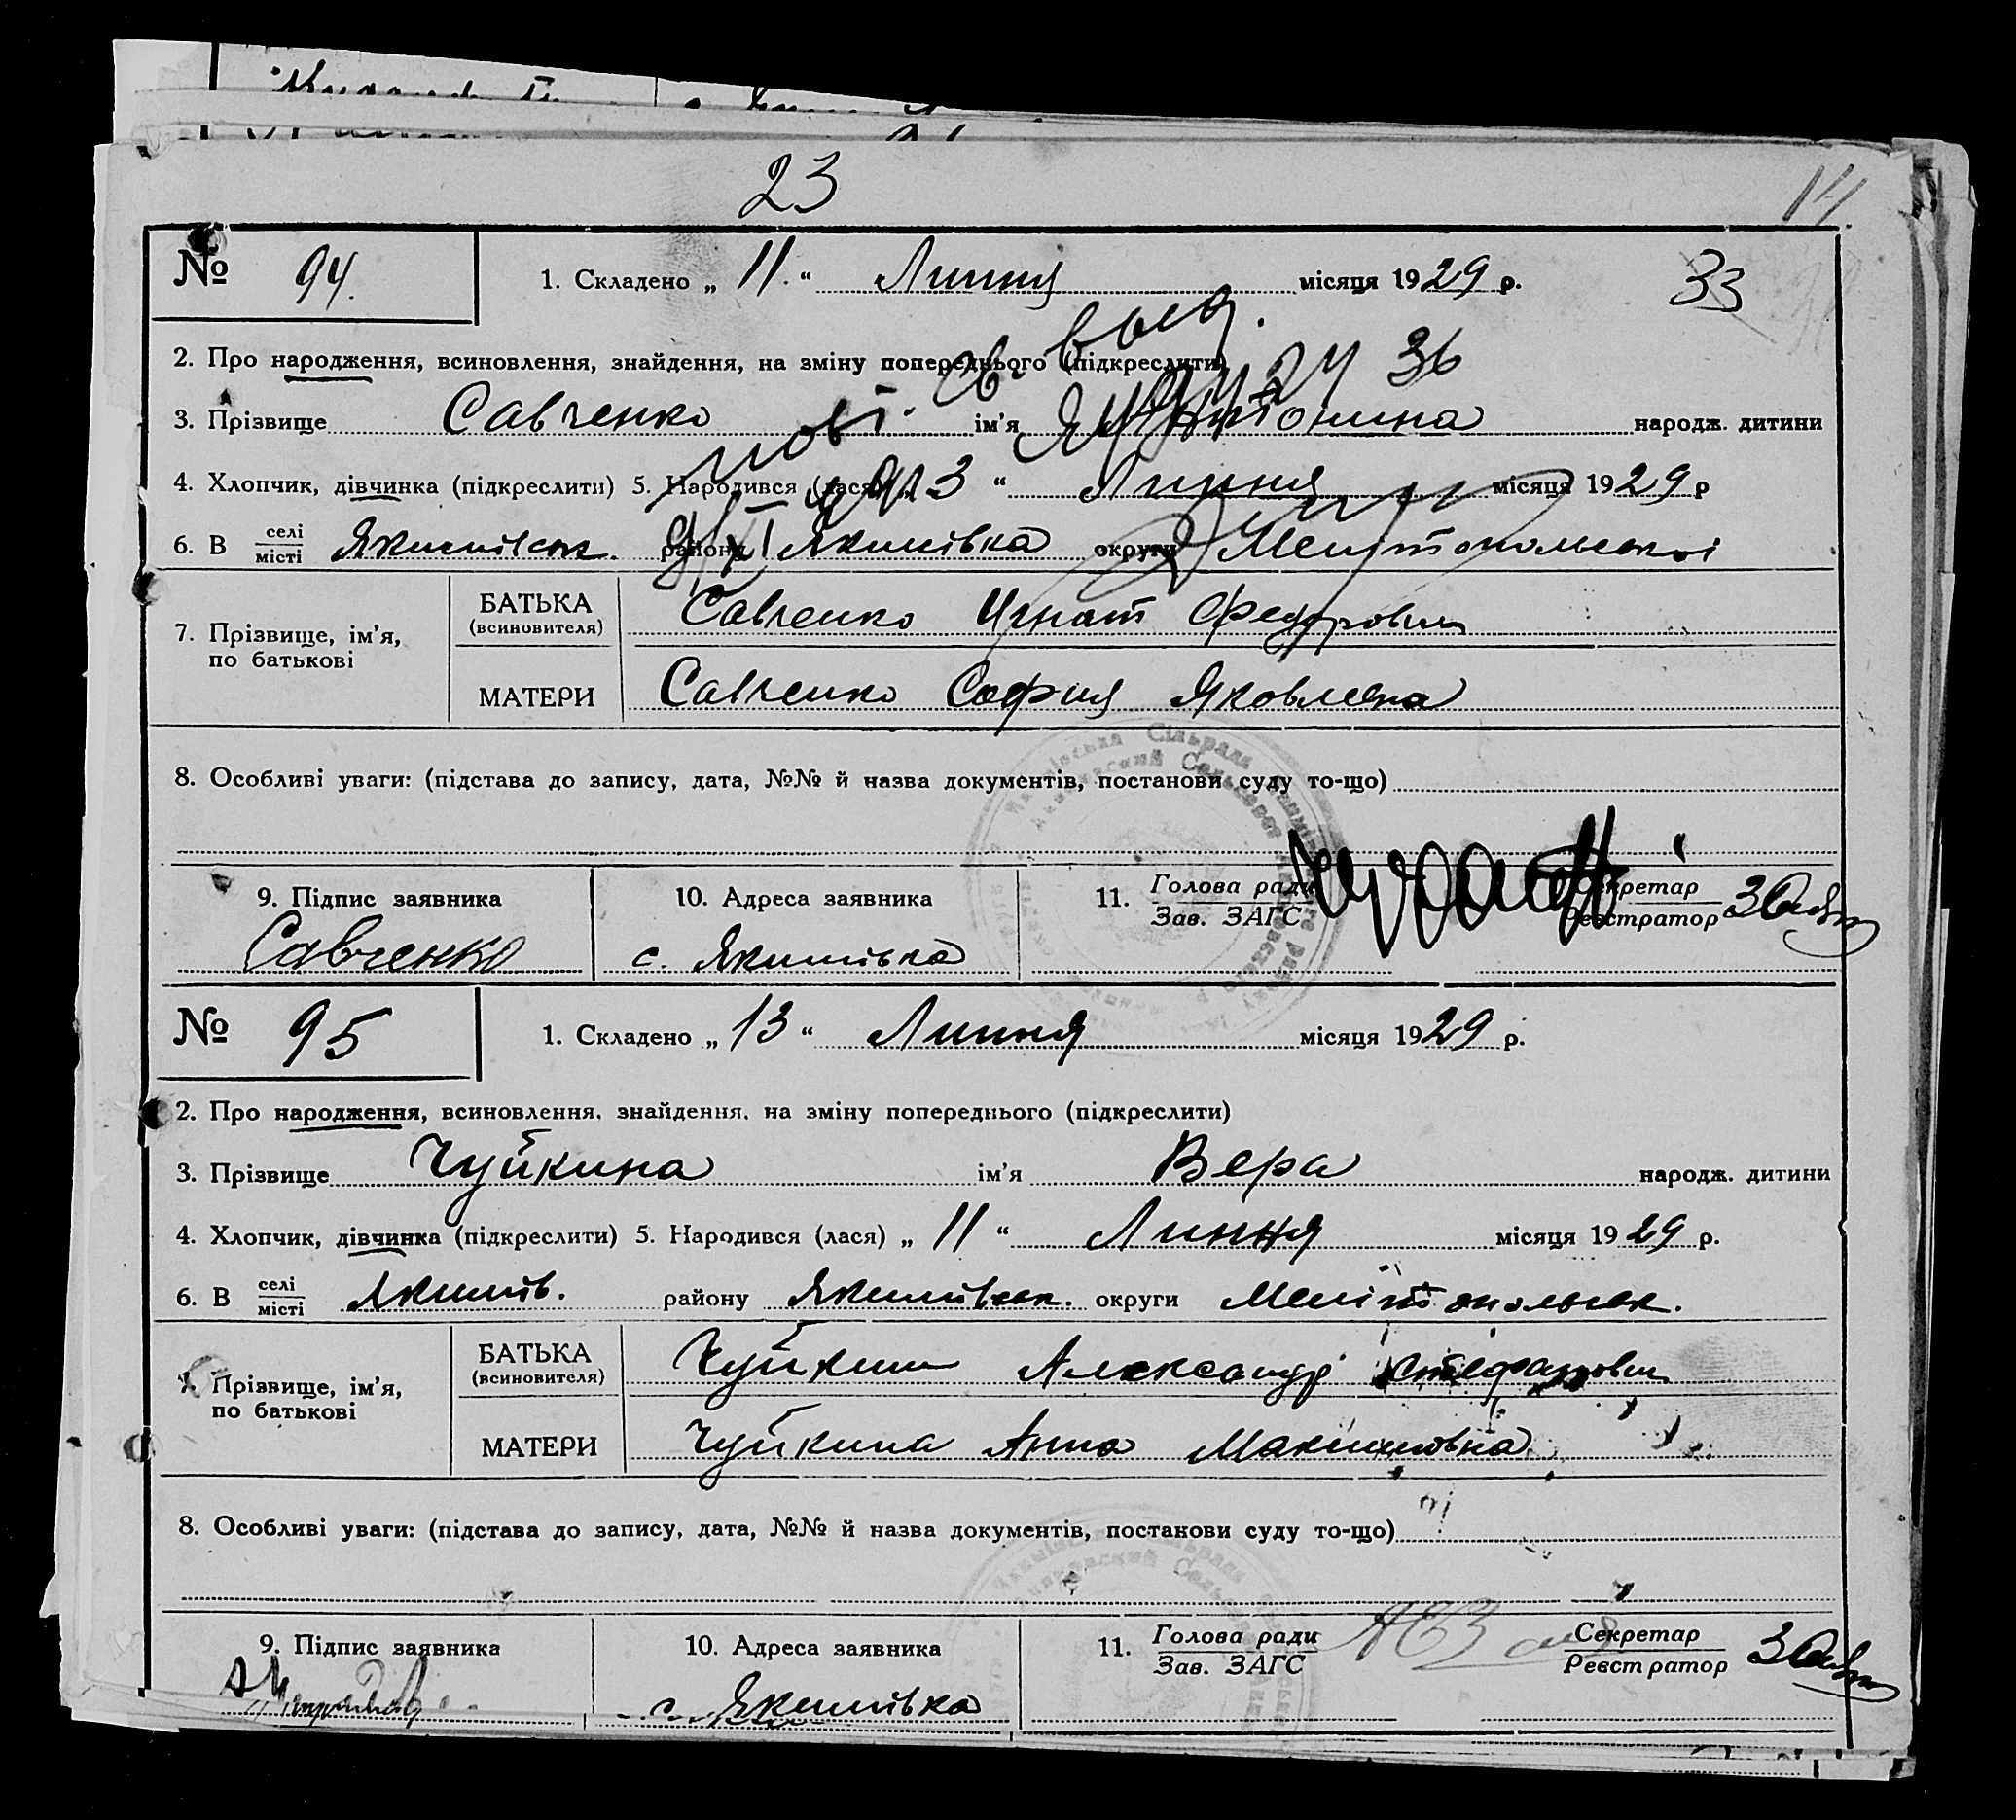 23
14
№ 94. 1. Складено „ 11. “ Липня місяця 1929 р. 33
2. Про народження, всиновлення, знайдення, на зміну попереднього (підкреслити)
пов. св. выд.
36
3. Прізвище Савченко ім'я Антонина народж. дитини
4. Хлопчик, дівчинка (підкреслити) 5. Народився (лася) 3 “ Липня місяця 1929 р
6. В селі/місті Якимівськ. району Якимівка округи Мелітопольської
7. Прізвище, ім'я, по батькові
БАТЬКА (всиновителя) Савченко Игнат Федорович
МАТЕРИ Савченко София Яковлевна
8. Особливі уваги: (підстава до запису, дата, №№ й назва документів, постанови суду то-що)
9. Підпис заявника 10. Адреса заявника 11. Голова ради / Зав. ЗАГС Секретар / Реєстратор
Савченко с. Якимівка
№ 95 1. Складено „ 13 “ Липня місяця 1929 р.
2. Про народження, всиновлення, знайдення, на зміну попереднього (підкреслити)
3. Прізвище Чуйкина ім'я Вера народж. дитини
4. Хлопчик, дівчинка (підкреслити) 5. Народився (лася) „ 11 “ Липня місяця 1929 р.
6. В селі/місті Якимів. району Якимівськ. округи Мелітопольськ.
7. Прізвище, ім'я, по батькові
БАТЬКА (всиновителя) Чуйкин Александр Стефанович
МАТЕРИ Чуйкина Анна Максимовна
8. Особливі уваги: (підстава до запису, дата, №№ й назва документів, постанови суду то-що)
9. Підпис заявника 10. Адреса заявника 11. Голова ради / Зав. ЗАГС Секретар / Реєстратор
с. Якимівка